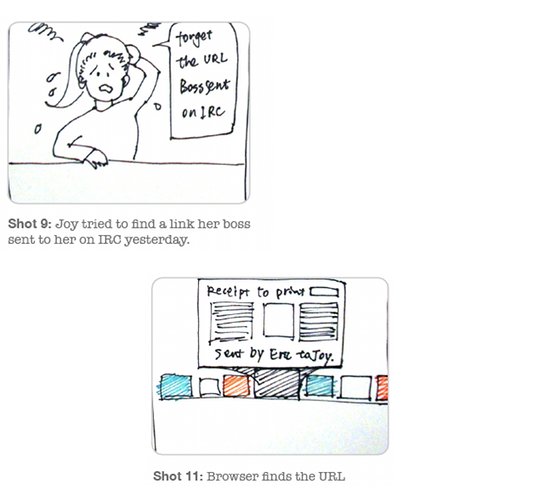 forget
the URL
Boss sent
on IRC
Shot 9: Joy tried to find a link her boss
sent to her on IRC yesterday.
Receipt to print
Sent by Eric to Joy.
Shot 11: Browser finds the URL